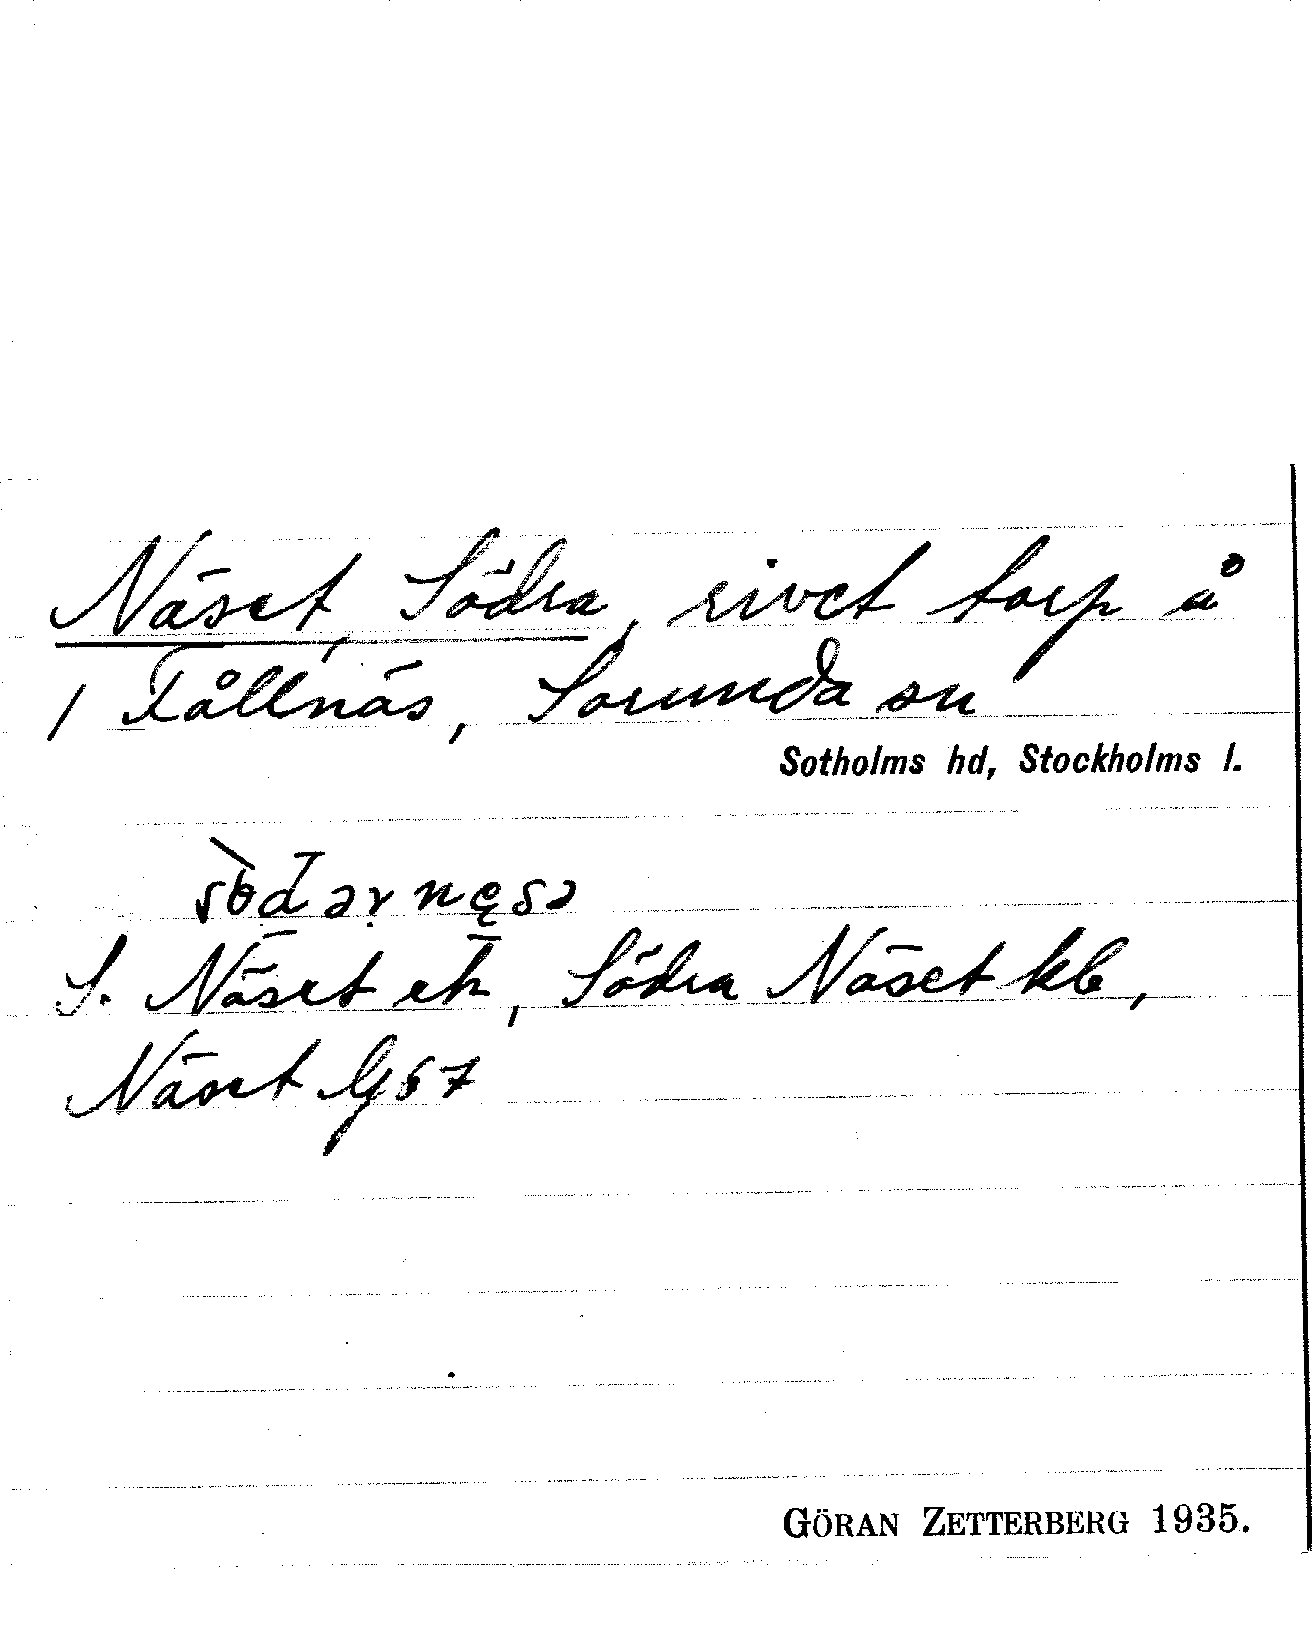 Näset, Södra, rivet torp å
1 Fållnäs, Sorunda sn
Sotholms hd, Stockholms l.
S. Näset ek, Södra Näset kb,
Näset G 57
GÖRAN ZETTERBERG 1935.